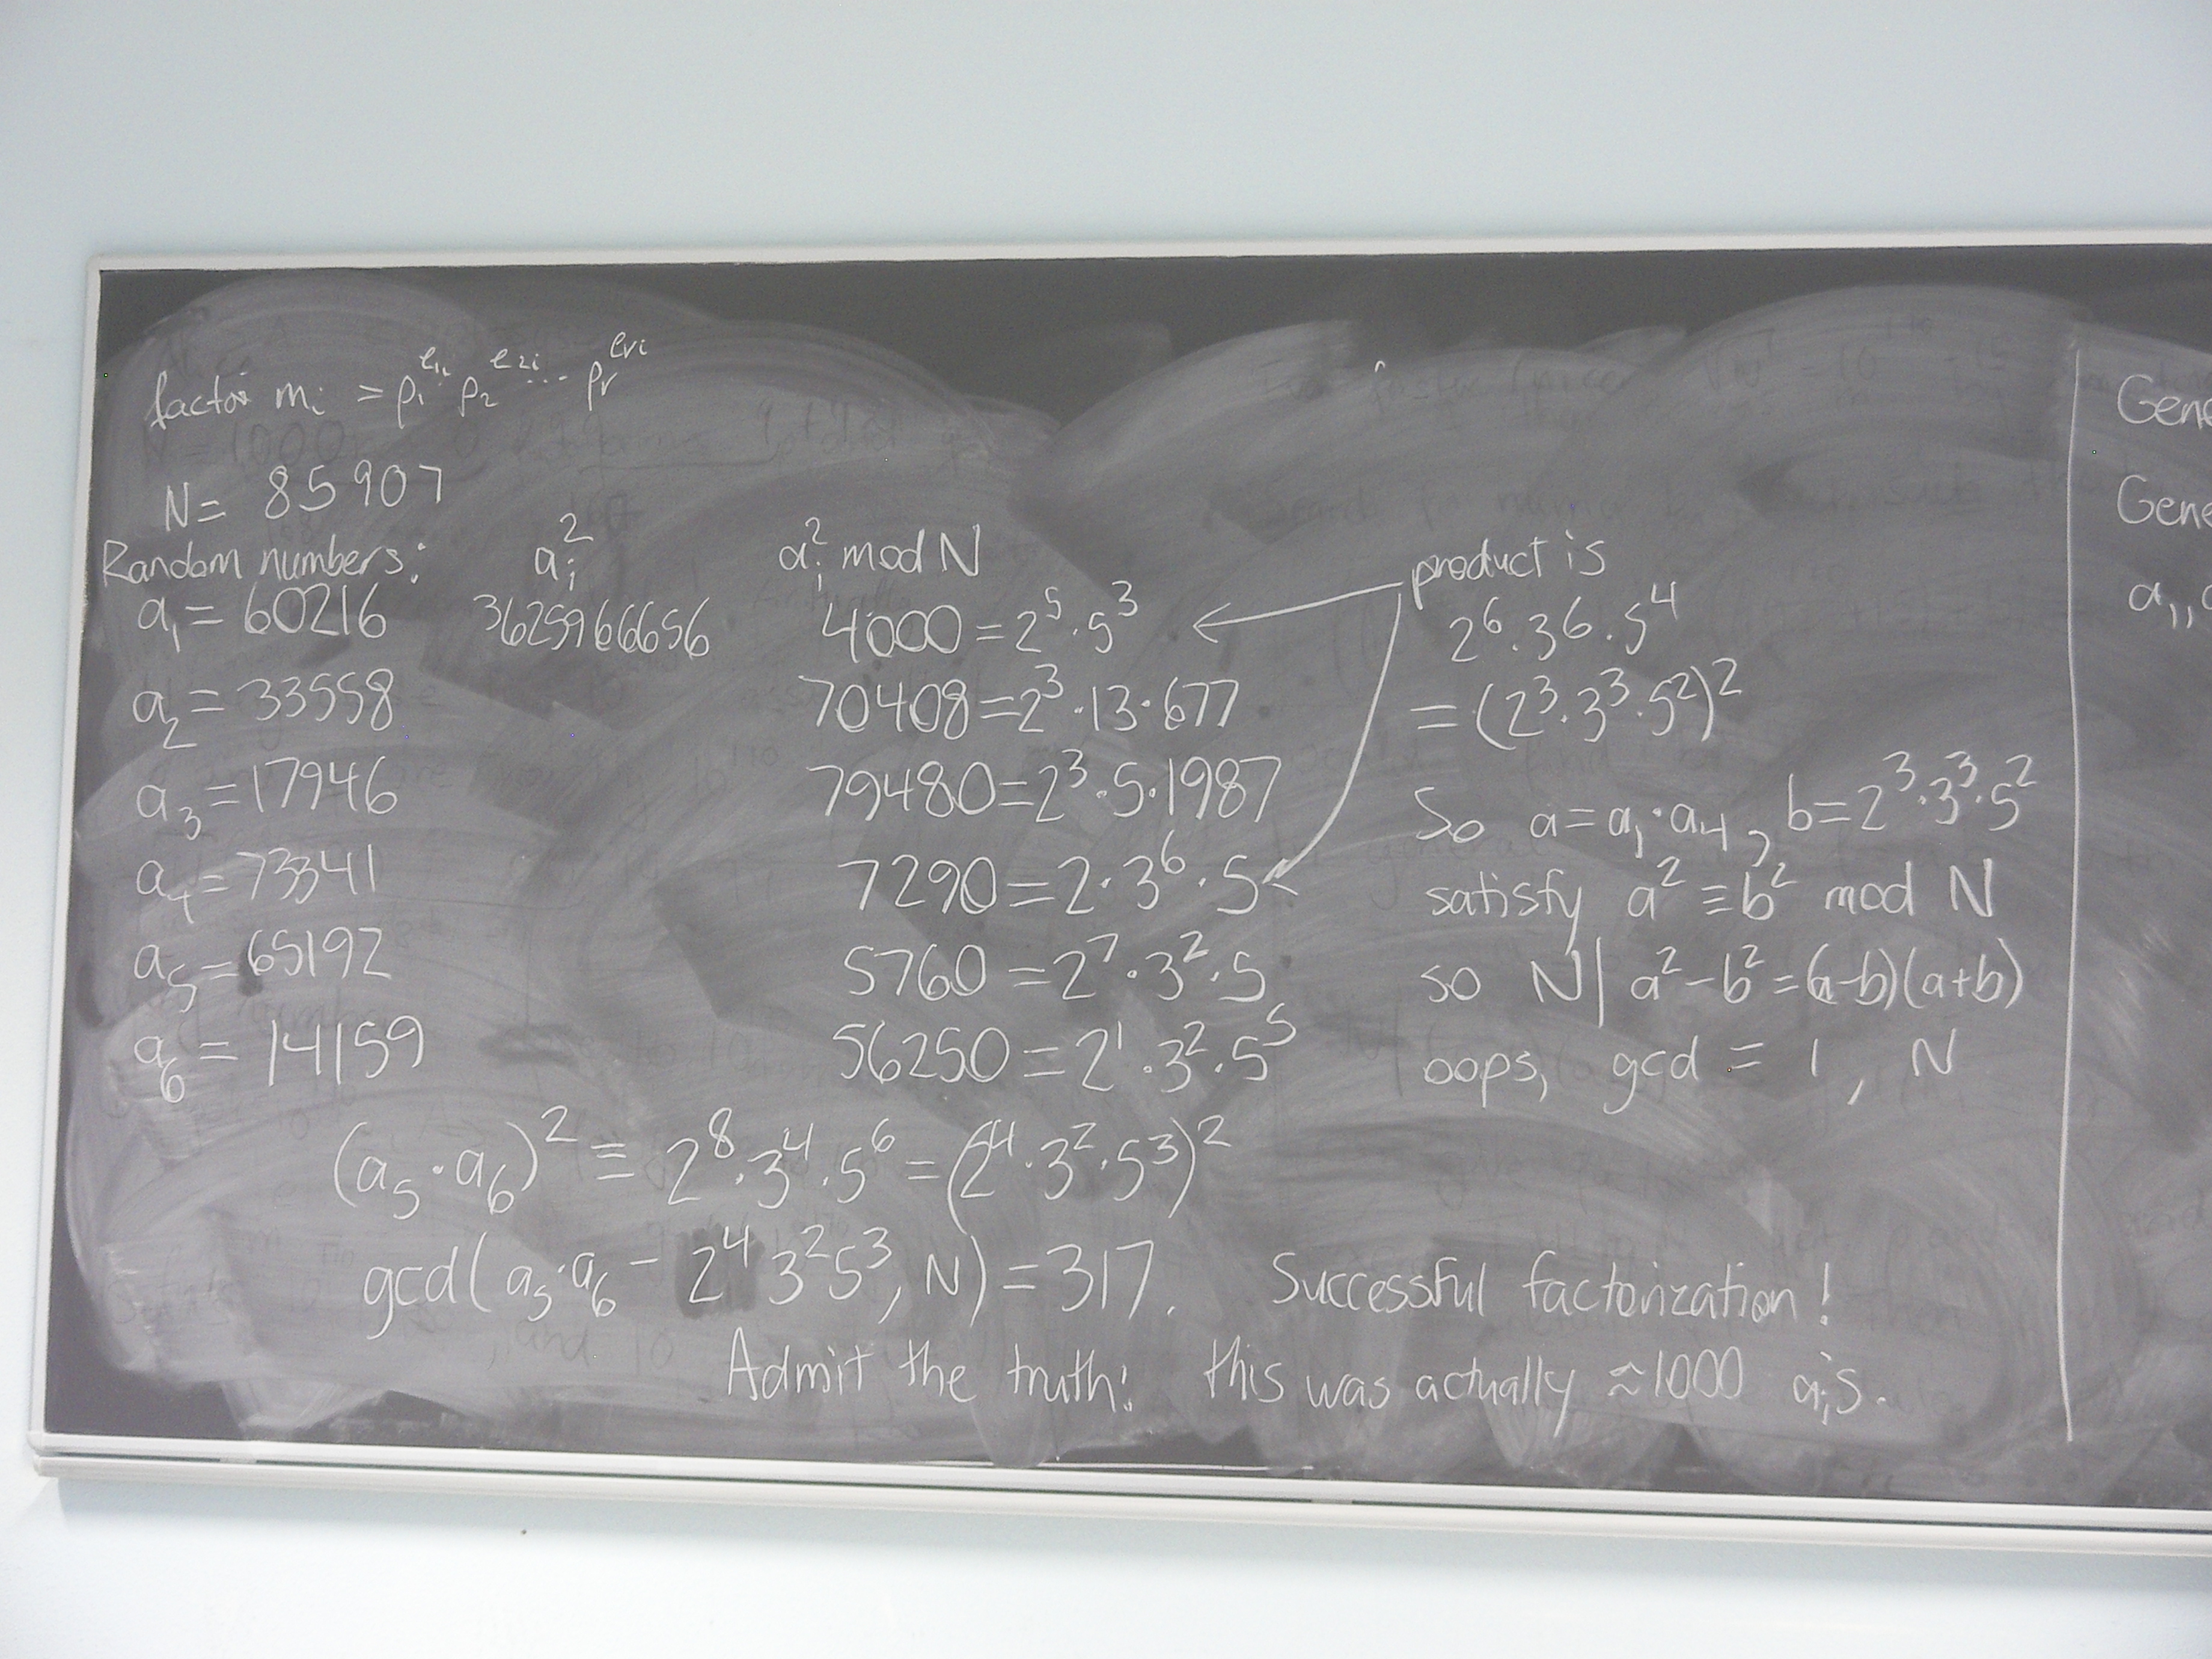 factor mᵢ = p₁^e₁ᵢ p₂^e₂ᵢ ... pᵣ^eᵣᵢ
N = 85907
Random numbers: aᵢ² aᵢ² mod N
a₁ = 60216 3625966656 4000 = 2⁵·5³
a₂ = 33558 70408 = 2³·13·677
a₃ = 17946 79480 = 2³·5·1987
a₄ = 73341 7290 = 2·3⁶·5
a₅ = 65192 5760 = 2⁷·3²·5
a₆ = 14159 56250 = 2¹·3²·5⁵
product is
2⁶·3⁶·5⁴
= (2³·3³·5²)²
So a = a₁·a₄, b = 2³·3³·5²
satisfy a² ≡ b² mod N
so N | a² - b² = (a-b)(a+b)
oops, gcd = 1, N
(a₅·a₆)² ≡ 2⁸·3⁴·5⁶ = (2⁴·3²·5³)²
gcd(a₅·a₆ - 2⁴3²5³, N) = 317. Successful factorization!
Admit the truth: this was actually ≈1000 aᵢ's.
Gene
Gene
a₁,